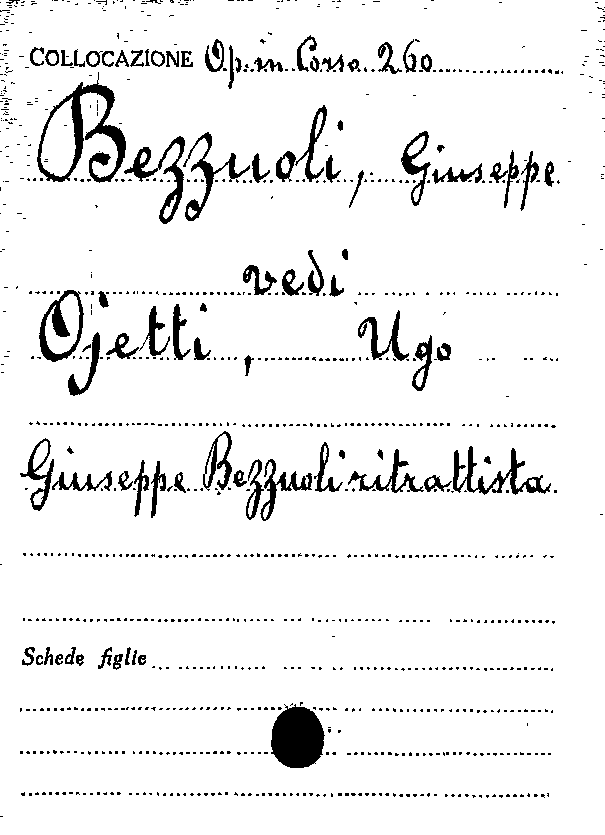 COLLOCAZIONE Op. in Corso 260
Bezzuoli, Giuseppe
vedi
Ojetti, Ugo
Giuseppe Bezzuoli ritrattista
Schede figlie